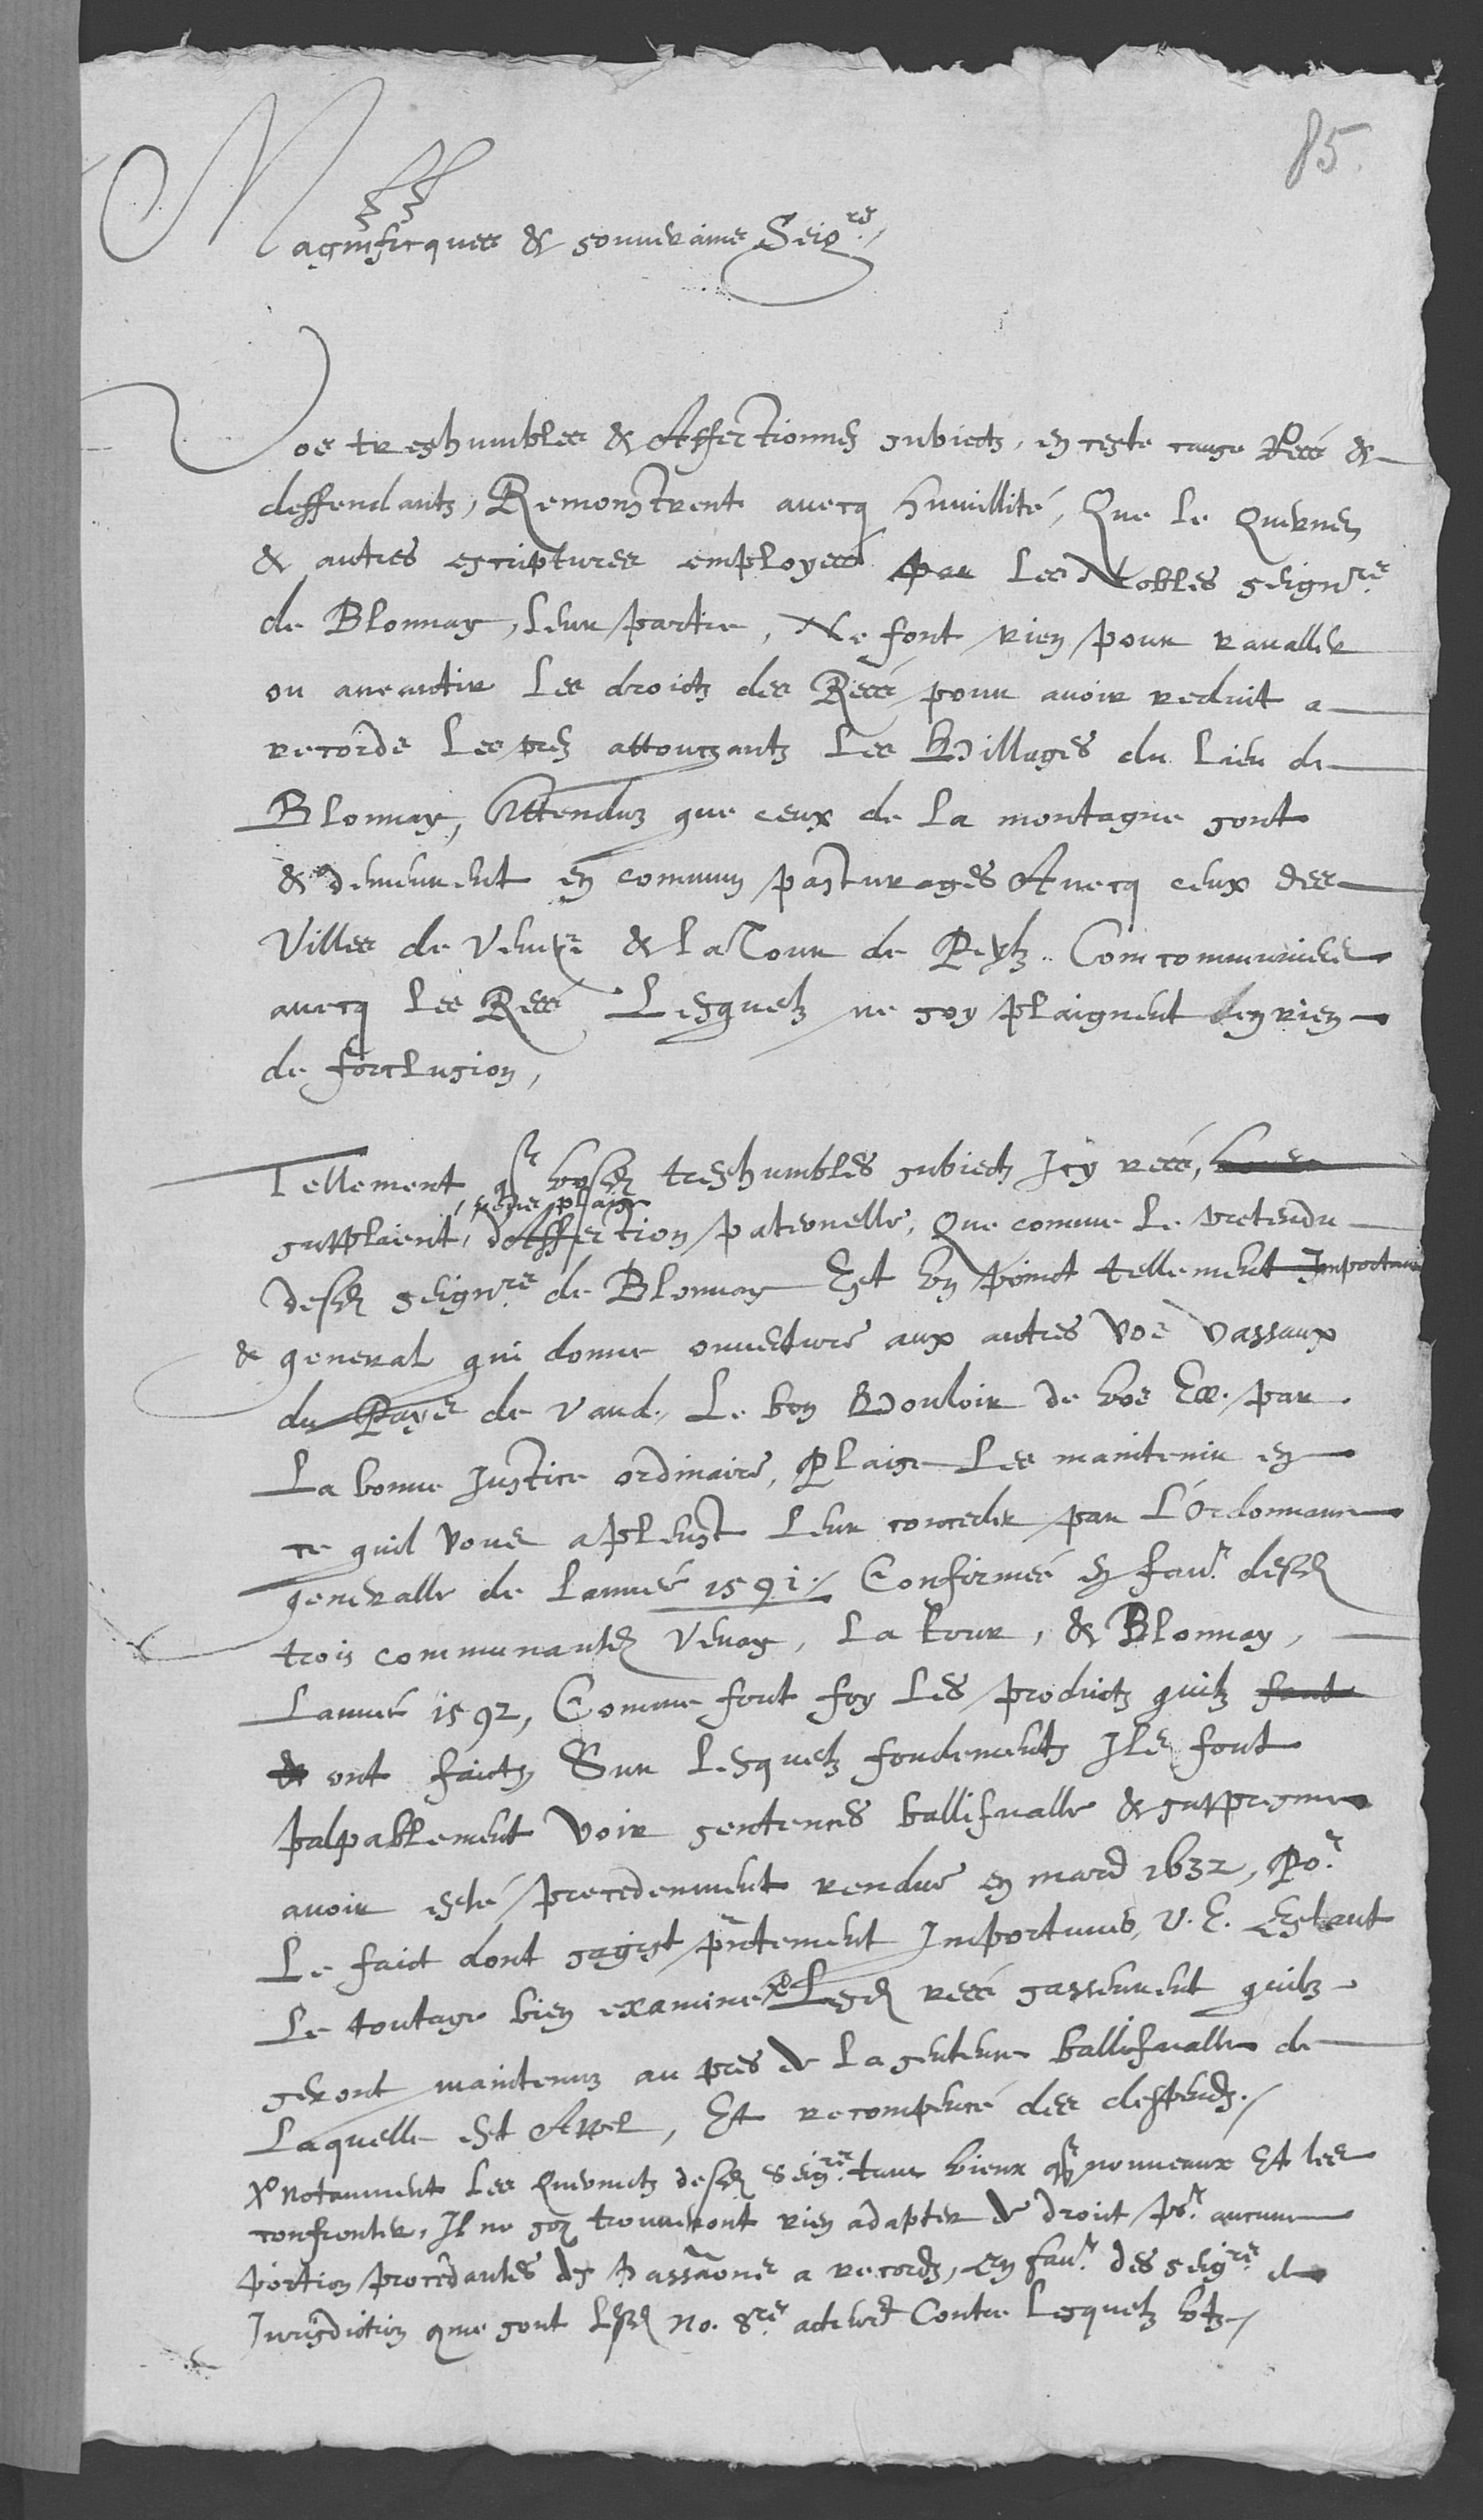 85.
Magnificques & souverains Seig.rs
Vos treshumbles & Affectionnez subiectz, en ceste cause Rées &
deffendants, Remonstrent avecq humillité, Que le Quernez
& autres escriptures employees par les Nobles seign.rs
de Blonnay, leur partie, Ne font rien pour ravaller
ou aneantir les droictz des Rées pour avoir reduit a
recorde les prez attouchants les Villages du lieu de
Blonnay, Attenduz que ceux de la montagne sont
& demeurent en commun pasturages Avecq ceux des
Villes de Vevey & la Tour de Peylz. Comcommuniers
avecq les Rées Lesquelz ne soy plaignent den rien
de forclusion,
Tellement q. vosd. treshumbles subiectz Icy rées,
supplient, dAffection paternelle, Que comme le pretendu
desd. seign.rs de Blonnay Est un poinct tellement Important
& general qui donne ouverture aux autres vos vassaux
du Pays de Vaud. Le bon Vouloir de vos Exx. par
La bonne Justice ordinaire, Plaise les maintenir en
ce quil vous a pleust leur conceder par L'Ordonnance
generalle de lannée 1591. Confirmée en fav.r desd.
trois communautez Vevay, La tour, & Blonnay,
Lannée 1592, Comme font foy les productz quilz font
& ont faictz Sur lesquelz fondements Ils font
palpablement voir sentences ballifvalle & suppresme
avoir esté precedemment rendue en mard 1632, Po.r
Le faict dont sagist pntement Importunes, V. E. Estant
Le toutage bien examine Lesd. rées sasseurent quilz
seront maintenuz au pres de la sentence ballifvalle de
Laquelle est Appel, Et recompence des despends.
Notamment les Quernetz desd. Seig.rs tant vieux q. nouveaux Et les
confronter, Il ne soy trouveront rien adapter de droit po.r aucune
portion procedantes des passaons a recordz, en fav.r des seig.rs de
Jurisdiction que sont lesd. No. S.rs acteurs Contre lesquelz etz.